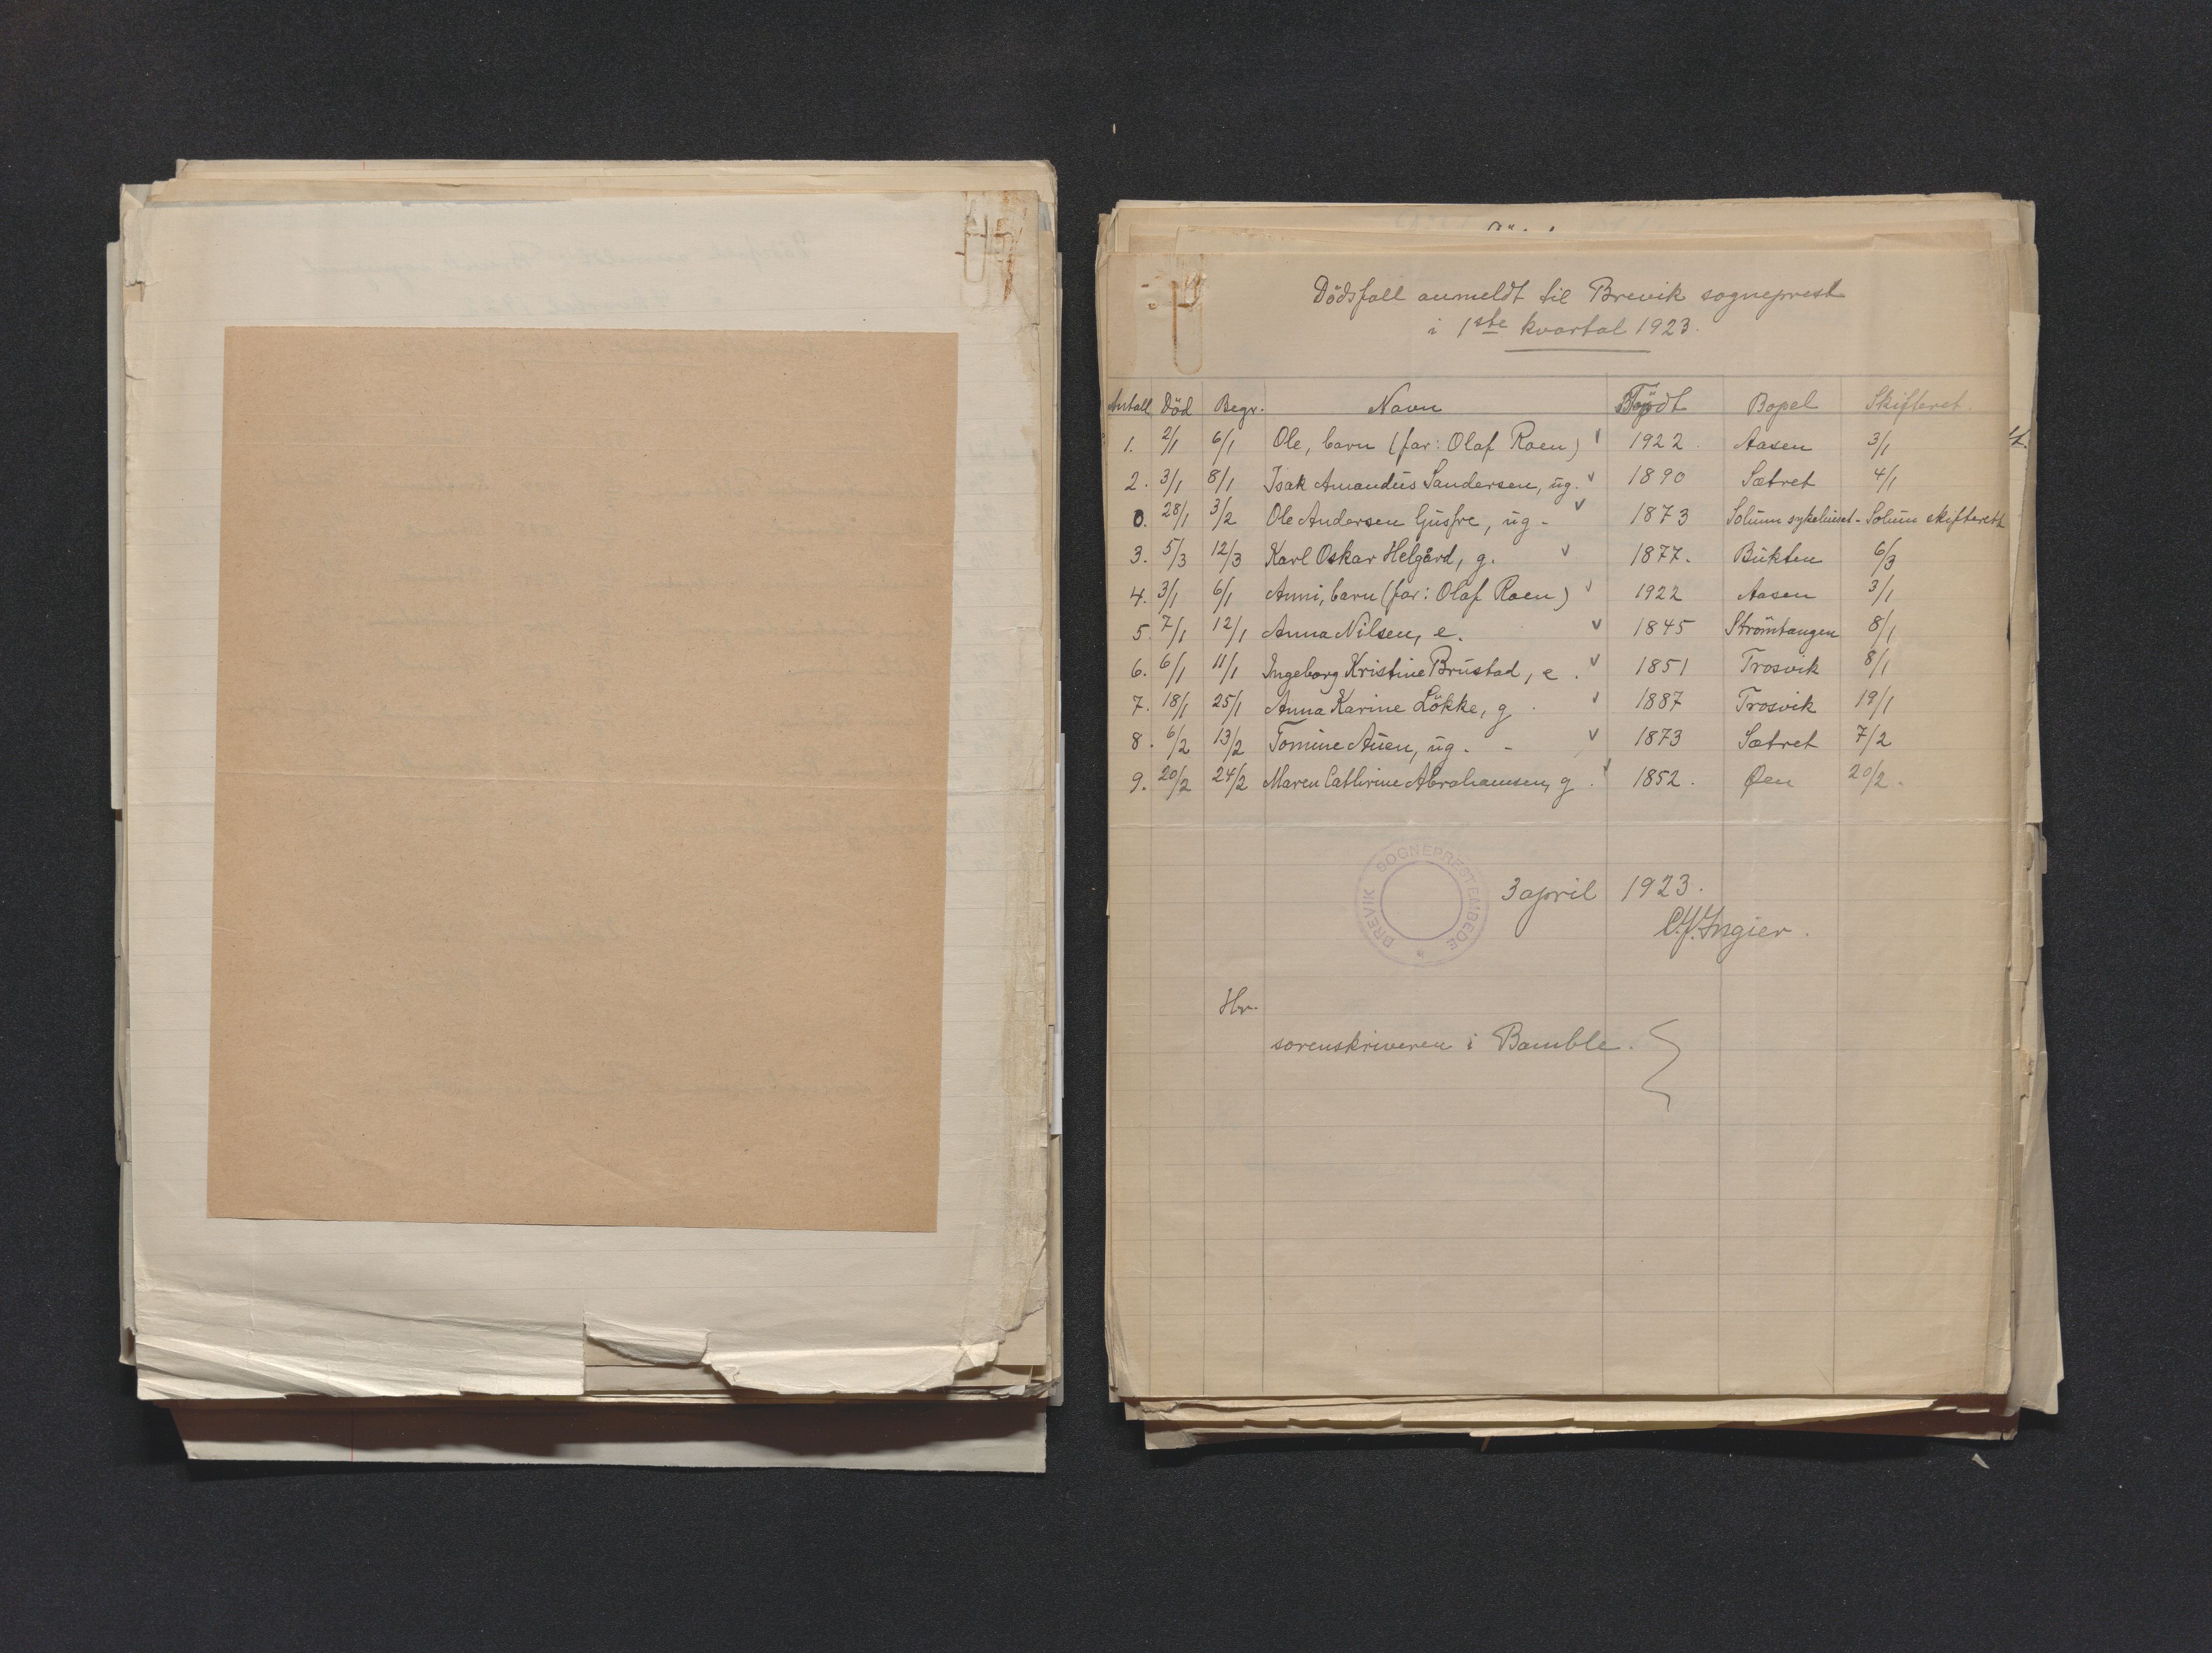 Dödsfall anmeldt til Brevik sogneprest
i 1ste kvartal 1923.
Antall Död Begr. Navn Födt Bopel Skifteret.
1. 2/1 6/1 Ole, barn (far: Olaf Roen) v 1922. Aasen 3/1
2. 3/1 8/1 Isak Amandus Sandersen, ug. v 1890 Sætret 4/1
0. 28/1 3/2 Ole Andersen, ug - v 1873 Solum sykehuset - Solum skifterett
3. 5/3 12/3 Karl Oskar Helgård, g. v 1877. Bukten 6/3
4. 3/1 6/1 Anni, barn (far: Olaf Roen) v 1922 Aasen 3/1
5. 7/1 12/1 Anna Nilsen, e. v 1845 Strömtangen 8/1
6. 6/1 11/1 Ingeborg Kristine Brustad, e. v 1851 Trosvik 8/1
7. 18/1 25/1 Anna Karine Lökke, g. v 1887 Trosvik 19/1
8. 6/2 13/2 Tomine Auen, ug. - v 1873 Sætret 7/2
9. 20/2 24/2 Maren Cathrine Abrahamsen, g. v 1852. Øen 20/2.
BREVIK SOGNEPRESTEMBEDE
3 april 1923.
Ingier.
Hr.
sorenskriveren i Bamble.